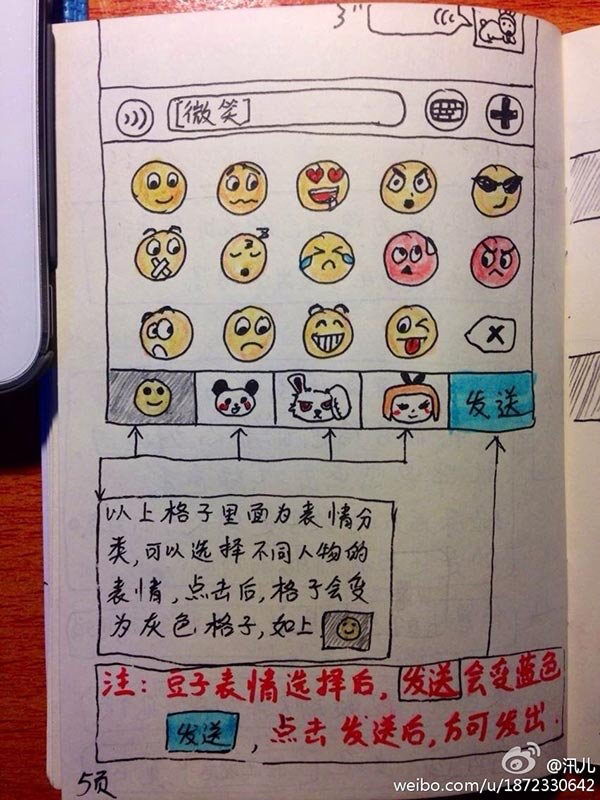 3"
[微笑]
z z
发送
以上格子里面为表情分
类,可以选择不同人物的
表情,点击后,格子会变
为灰色格子,如上
注:豆子表情选择后,发送会变蓝色
发送,点击发送后,方可发出.
5页
@汛儿
weibo.com/u/1872330642